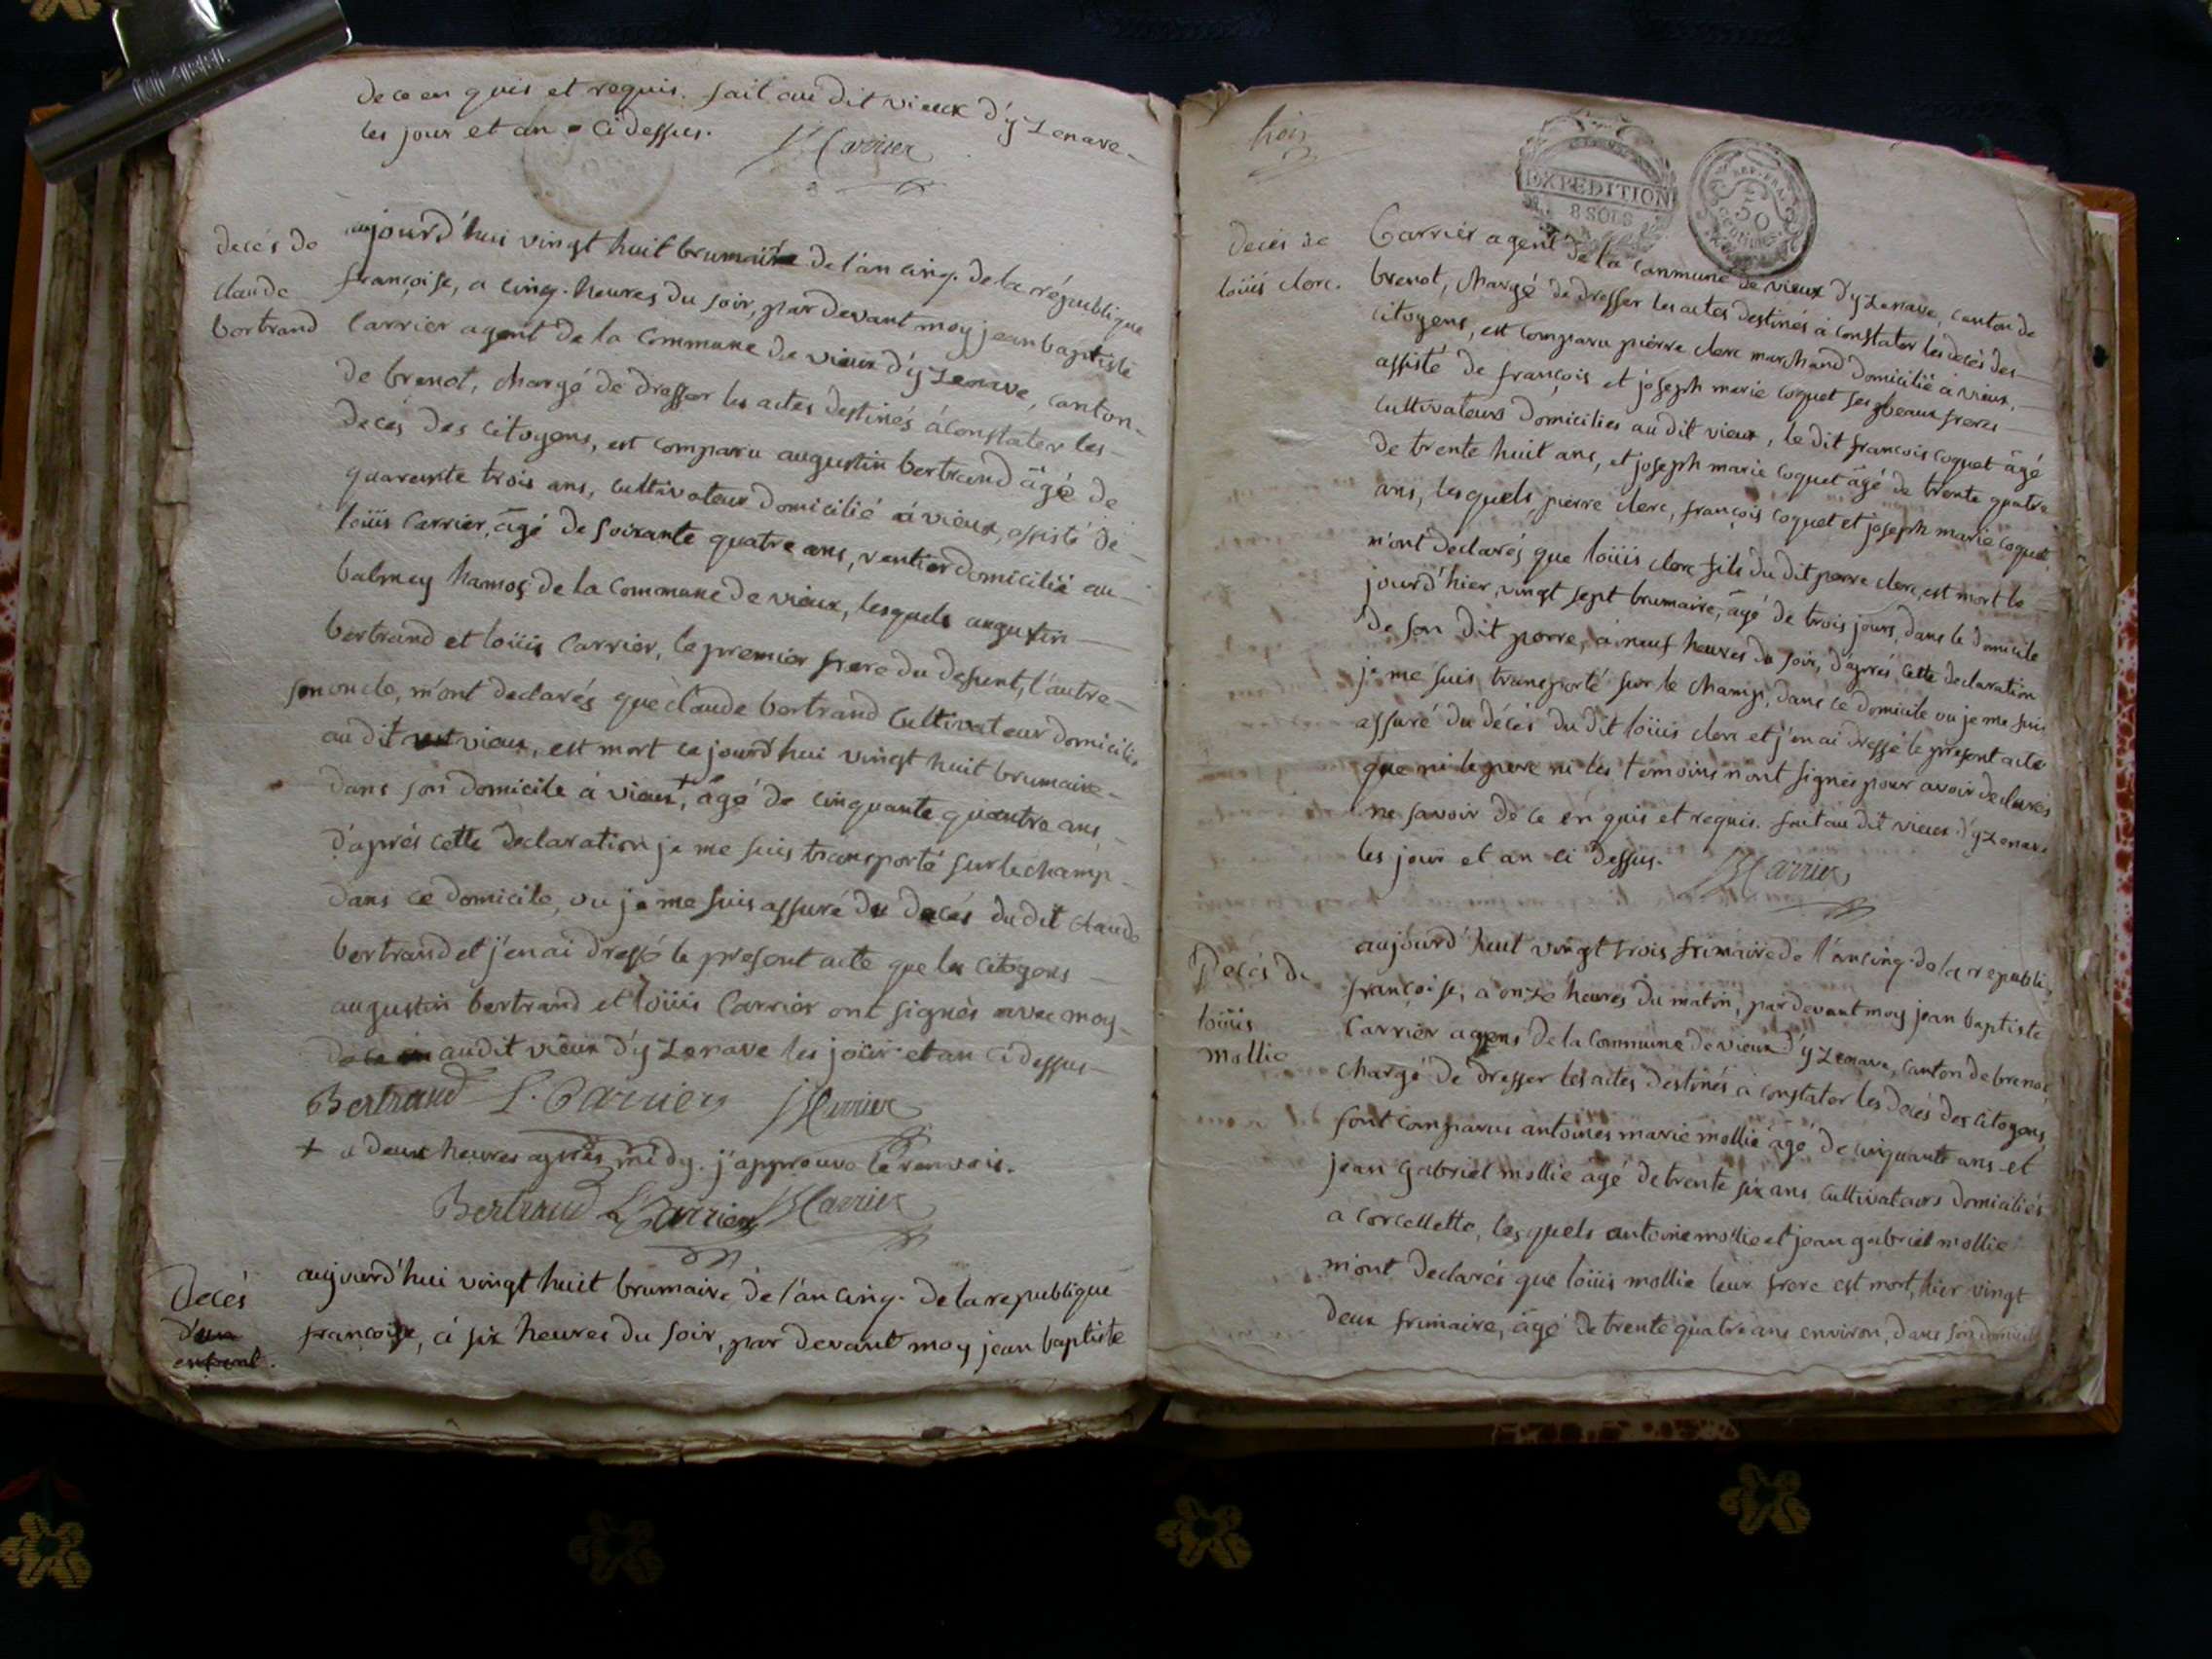 de ce en quis et requis. fait au dit vieux d'yzenave
les jour et an ci dessus. JBCarrier
decés de
claude
bertrand
aujourd'hui vingt huit brumaire de l'an cinq. de la république
françoise, a cinq. heures du soir, par devant moy jean baptiste
Carrier agent de la Commune de vieux d'yzenave, canton
de brenot, chargé de dresser les actes destinés à constater les
decés des citoyens, est comparu augustin bertrand âgé de
quarante trois ans, cultivateur domicilié à vieux, assisté de
loüis Carrier, âgé de soixante quatre ans, rentier domicilié au
balmey hamos de la commune de vieux, lesquels augustin
bertrand et loüis Carrier, le premier frere du defunt, l'autre
son oncle, m'ont declarés que claude bertrand Cultivateur domicilié
au dit vieux, est mort ce jourd'hui vingt huit brumaire
dans son domicile à vieux, + âgé de cinquante quatre ans
d'aprés cette declaration je me suis transporté sur le champ
dans ce domicile, ou je me suis assuré du decés du dit claude
bertrand et j'en ai dressé le present acte que les citoyens
augustin bertrand et loüis Carrier ont signés avec moy
au dit vieux d'yzenave les jour et an ci dessus
Bertrand L. Carrier JBCarrier
+ a deux heures aprés midy. j'approuve le renvois.
Bertrand L. Carrier JBCarrier
Decés
d'un
enfant.
aujourd'hui vingt huit brumaire de l'an cinq. de la republique
francoise, à six heures du soir, par devant moy jean baptiste
trois
EXPEDITION
8 SOLS
REP. FRA.
50
CENTIMES
decés de
loüis clerc.
Carrier agent de la Commune de vieux d'yzenave, canton de
brenot, chargé de dresser les actes destinés à constater les decés des
citoyens, est comparu pierre clerc marchand domicilié à vieux,
assisté de françois et joseph marie coquet ses beaux freres
cultivateurs domiciliés au dit vieux, le dit francois coquet âgé
de trente huit ans, et joseph marie coquet âgé de trente quatre
ans, lesquels pierre clerc, françois coquet et joseph marie coquet
m'ont declarés que loüis clerc fils du dit pierre clerc, est mort le
jourd'hier, vingt sept brumaire, âgé de trois jours, dans le domicile
de son dit perre, à neuf heures du soir, d'aprés cette declaration
je me suis transporté sur le champ, dans ce domicile ou je me suis
assuré du décés du dit loüis clerc et j'en ai dressé le present acte
que ni le pere ni les temoins n'ont signés pour avoir declarés
ne savoir de ce en quis et requis. fait au dit vieux d'yzenave
les jour et an ci dessus. JBCarrier
Decés de
loüis
mollie
aujourd'hui vingt trois frimaire de l'an cinq. de la republi.
françoise, a onze heures du matin, par devant moy jean baptiste
Carrier agens de la Commune de vieux d'yzenave, canton de brenot,
chargé de dresser les actes destinés à constater les decés des citoyens,
sont comparus antoines marie mollie âgé de cinquante ans et
jean gabriel mollie âgé de trente six ans cultivateurs domiciliés
a corcellette, lesquels antoine mollie et jean gabriel mollie
m'ont declarés que loüis mollie leur frere est mort, hier vingt
deux frimaire, âgé de trente quatre ans environ, dans son domicile